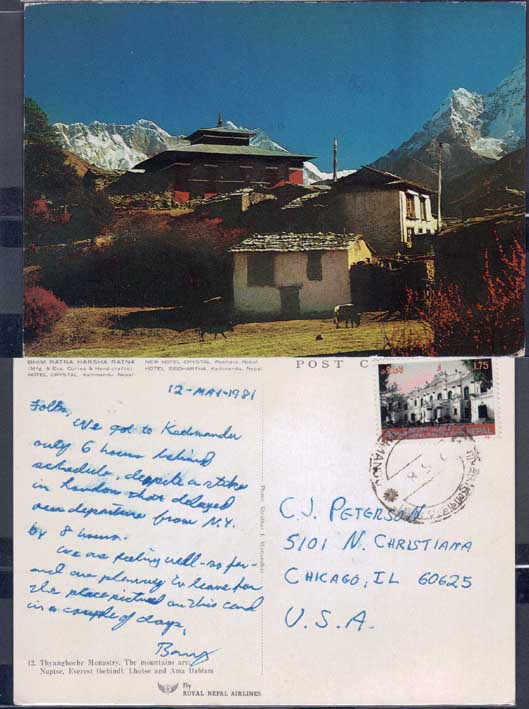 BHIM RATNA HARSHA RATNA NEW HOTEL CRYSTAL, Pokhara, Nepal
(Mfg. & Exp. Curios & Handicrafts) HOTEL SIDDHARTHA, Kathmandu, Nepal
HOTEL CRYSTAL, Kathmandu, Nepal
POST
1.75
NEPAL
12-MAY-1981
Folks,
We got to Kadmander
only 6 hours behind
schedule, despite a strike
in London that delayed
our departure from N.Y.
by 8 hours.
We are feeling well-so far-
and are planning to leave for
the place pictured on this card
in a couple of days,
Barry
C.J. PETERSON
5101 N. CHRISTIANA
CHICAGO, IL 60625
U.S.A.
12. Thyangboche Monastry. The mountains are:
Nuptse, Everest (behind), Lhotse and Ama Dablam
Fly
ROYAL NEPAL AIRLINES